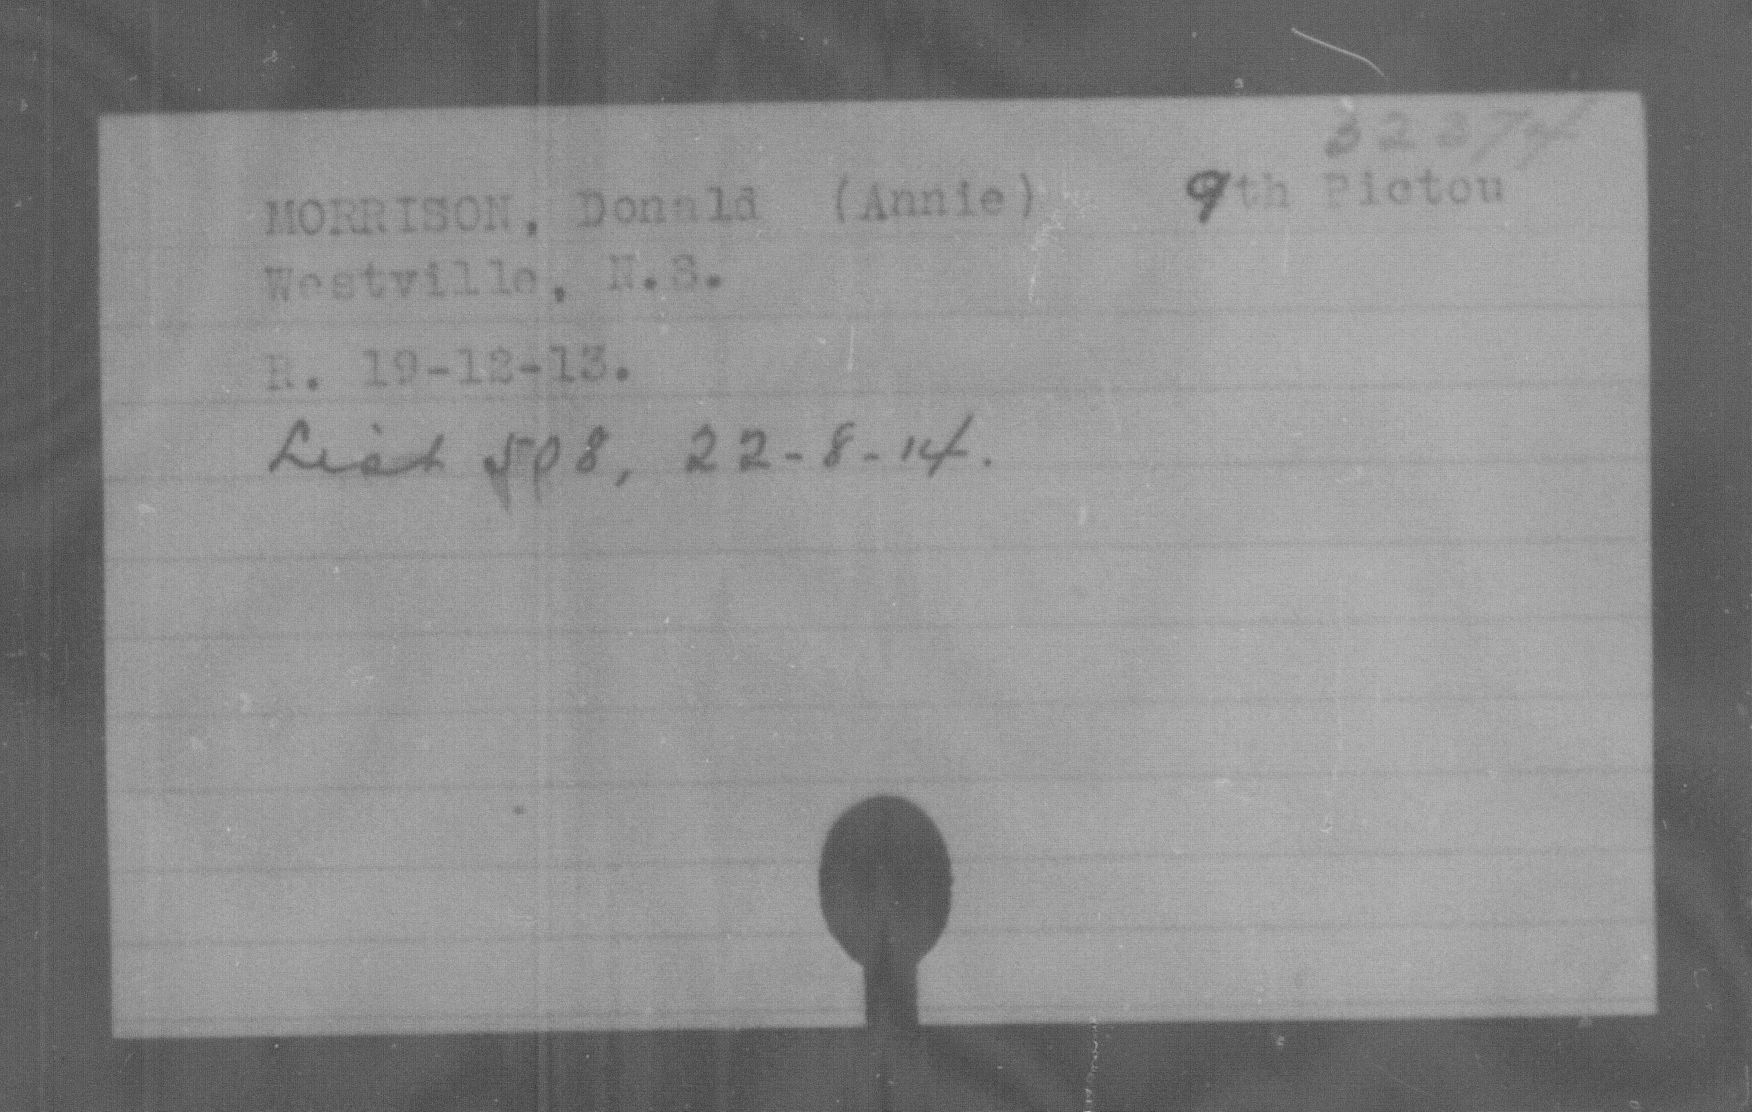 32374
MORRISON, Donald (Annie) 9th Pictou
Westville, N.S.
R. 19-12-13.
List 508, 22-8-14.